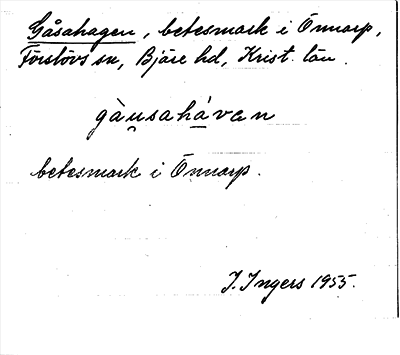 Gåsahagen, betesmark i Önnarp,
Förslövs sn, Bjäre hd, Krist. län.
gàu̯sahá̱van
betesmark i Önnarp.
I. Ingers 1955.